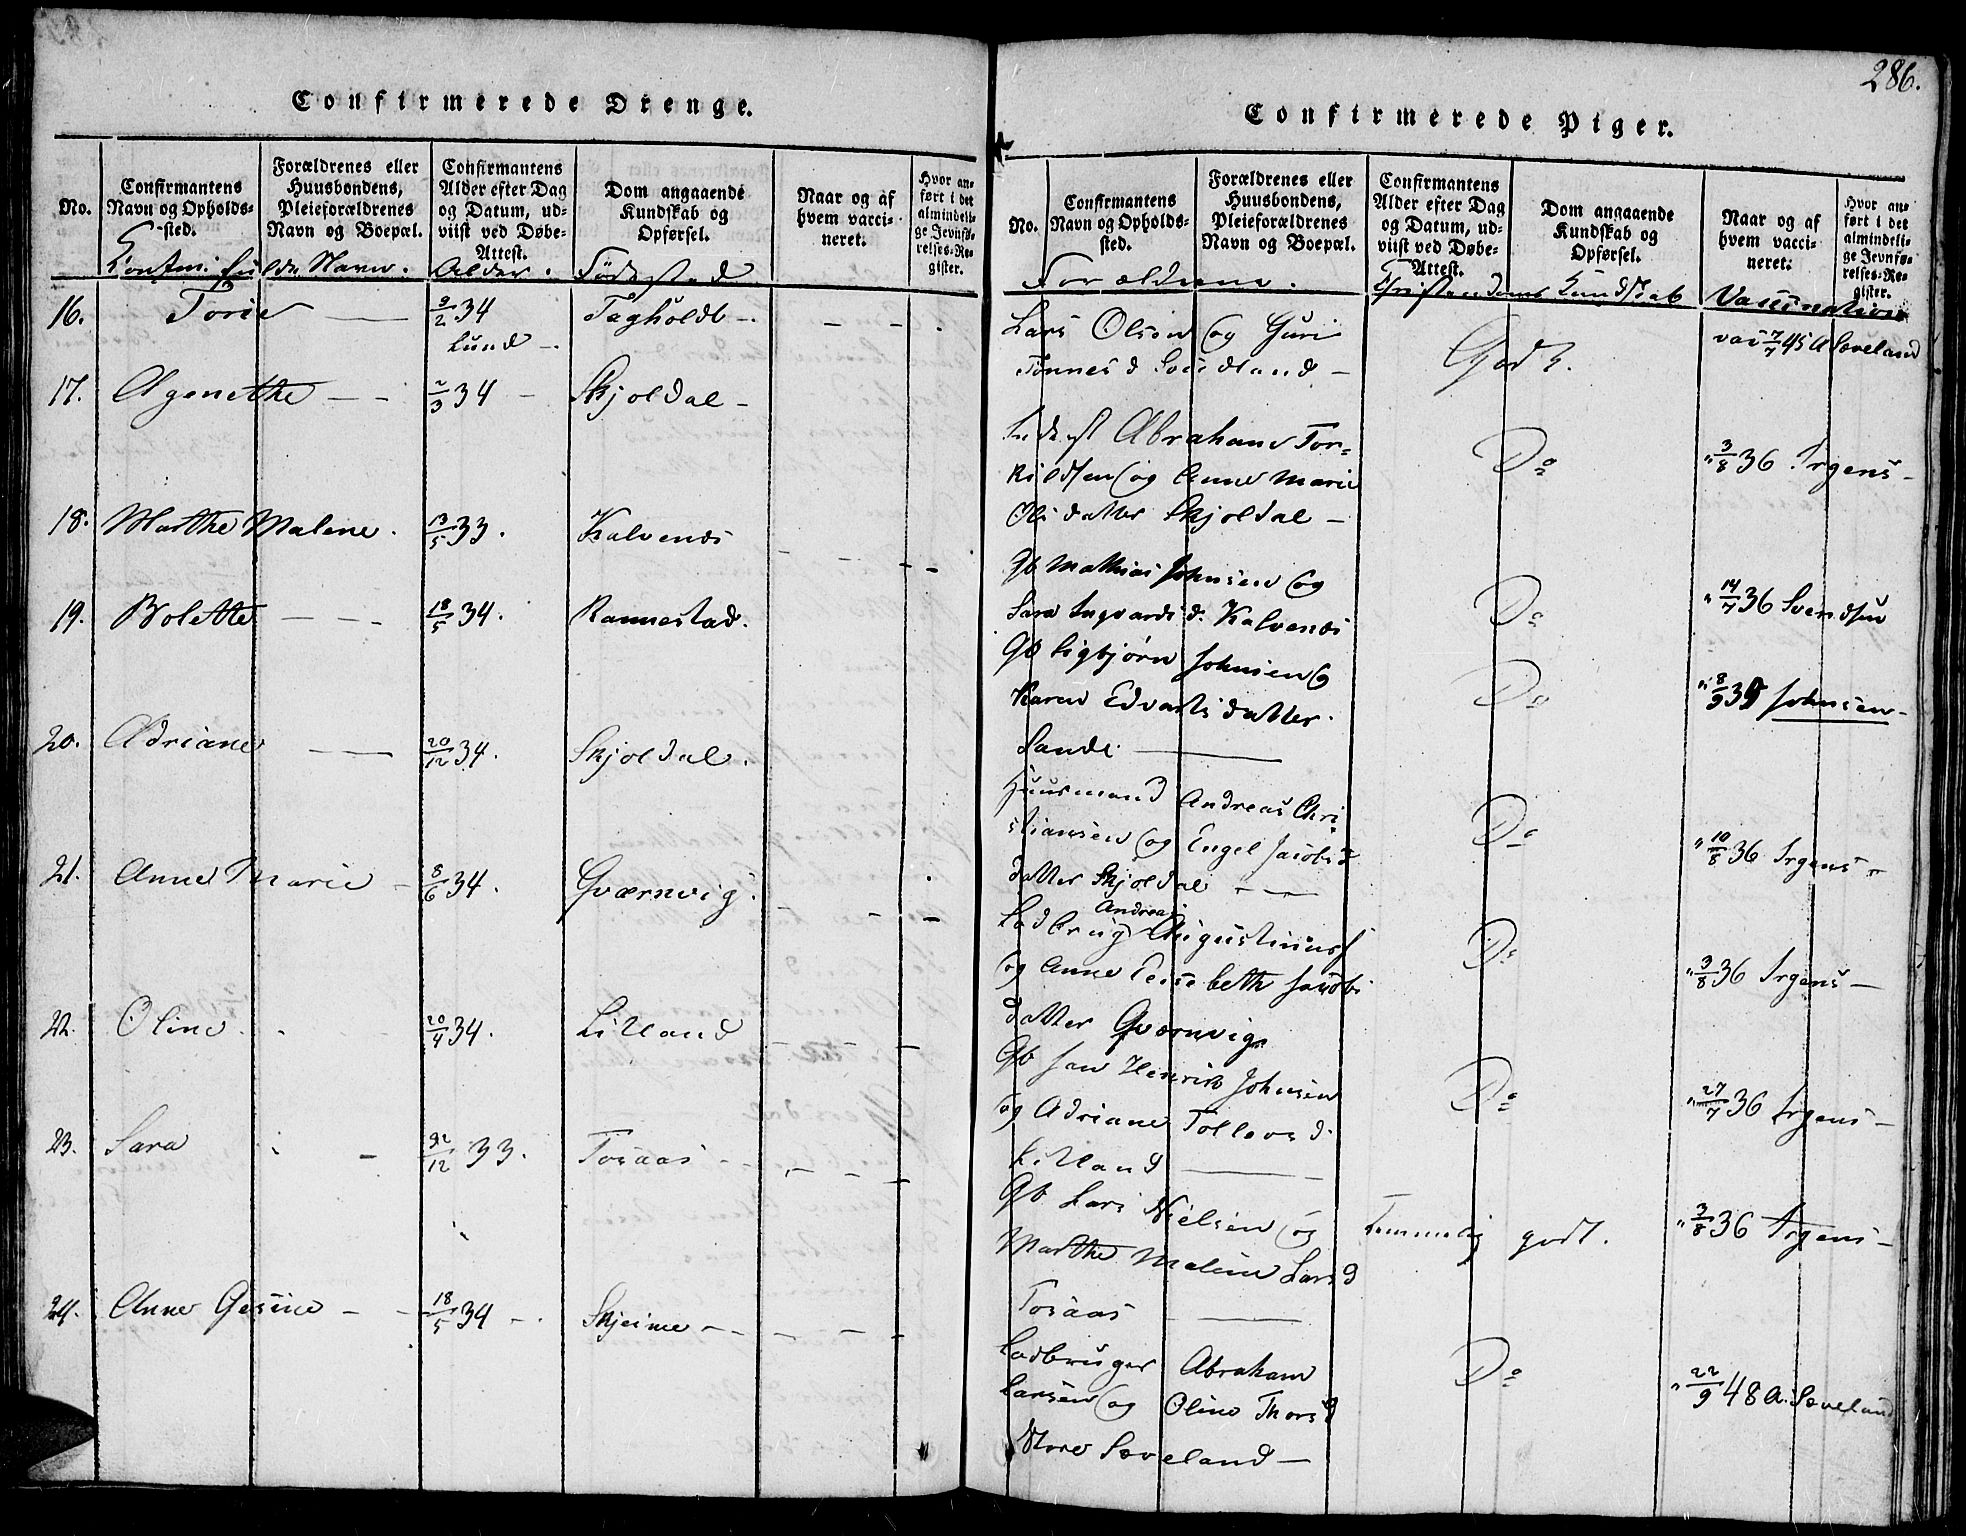 286.
Confirmerede Drenge.
No.
Confirmantens Navn og Opholds-sted.
Forældrenes eller Huusbondens, Pleieforældrenes Navn og Boepæl.
Confirmantens Alder efter Dag og Datum, ud-viist ved Døbe-Attest.
Dom angaaende Kundskab og Opførsel.
Naar og af hvem vacci-neret.
Hvor an-ført i det almindeli-ge Jevnfø-relses-Re-gister.
Navn. Alder. Fødested
16. Torie 9/2 34 Tagholdt
Lund
17. Agenethe 2/3 34 Skjoldal
18. Marthe Malene. 13/5 33. Kalvenæs
19. Bolette 18/5 34. Rannestad.
20. Adriane 20/12 34. Skjoldal.
21. Anne Marie 8/6 34. Qværnvig.
22. Oline 20/4 34. Litland
23. Sara /12 33. Tosaas
24. Anne Gesine 18/5 34 Skjeime
Confirmerede Piger.
No.
Confirmantens Navn og Opholds-sted.
Forældrenes eller Huusbondens, Pleieforældrenes Navn og Boepæl.
Confirmantens Alder efter Dag og Datum, ud-viist ved Døbe-Attest.
Dom angaaende Kundskab og Opførsel.
Naar og af hvem vacci-neret.
Hvor an-ført i det almindeli-ge Jevnfø-relses-Re-gister.
Forældrene. Christendoms Kundskab Vaccination
Lars Olsen og Guri
Tønnesd
Godt. 7/7 45 A Sæveland
Abraham Tor=
kildsen og Anne Marie
Olsdatter Skjoldal
Do 3/8 36 Irgens
Gb Mathias Johnsen og
Sara Ingvards d. Kalvenæs
Do 14/7 36 Svendsen
Gb Sigbjørn Johnsen og
Karen Edvartsdatter
Sande.
Do 8/9 Johnsen
Huusmand Andreas Chri
stiansen og Engel Jacobs
datter Skjoldal
Do 10/8 36 Irgens
Andreas
Ladbrug Augustinus
og Anne Elisebeth Jacobs
datter Qværnvig
Do 3/8 36 Irgens
Gb Jan Henrik Johnsen
og Adriane Tollevs d.
Litland
Do 27/7 36 Irgens
Gb Lars Nielsen og
Marthe Maline Lars d
Tosaas
Temmelig godt. 3/8 36 Irgens
Ladbruger Abraham
Larsen og Oline Thors d
Store Sæveland
Do 22/9 48 A. Sæveland